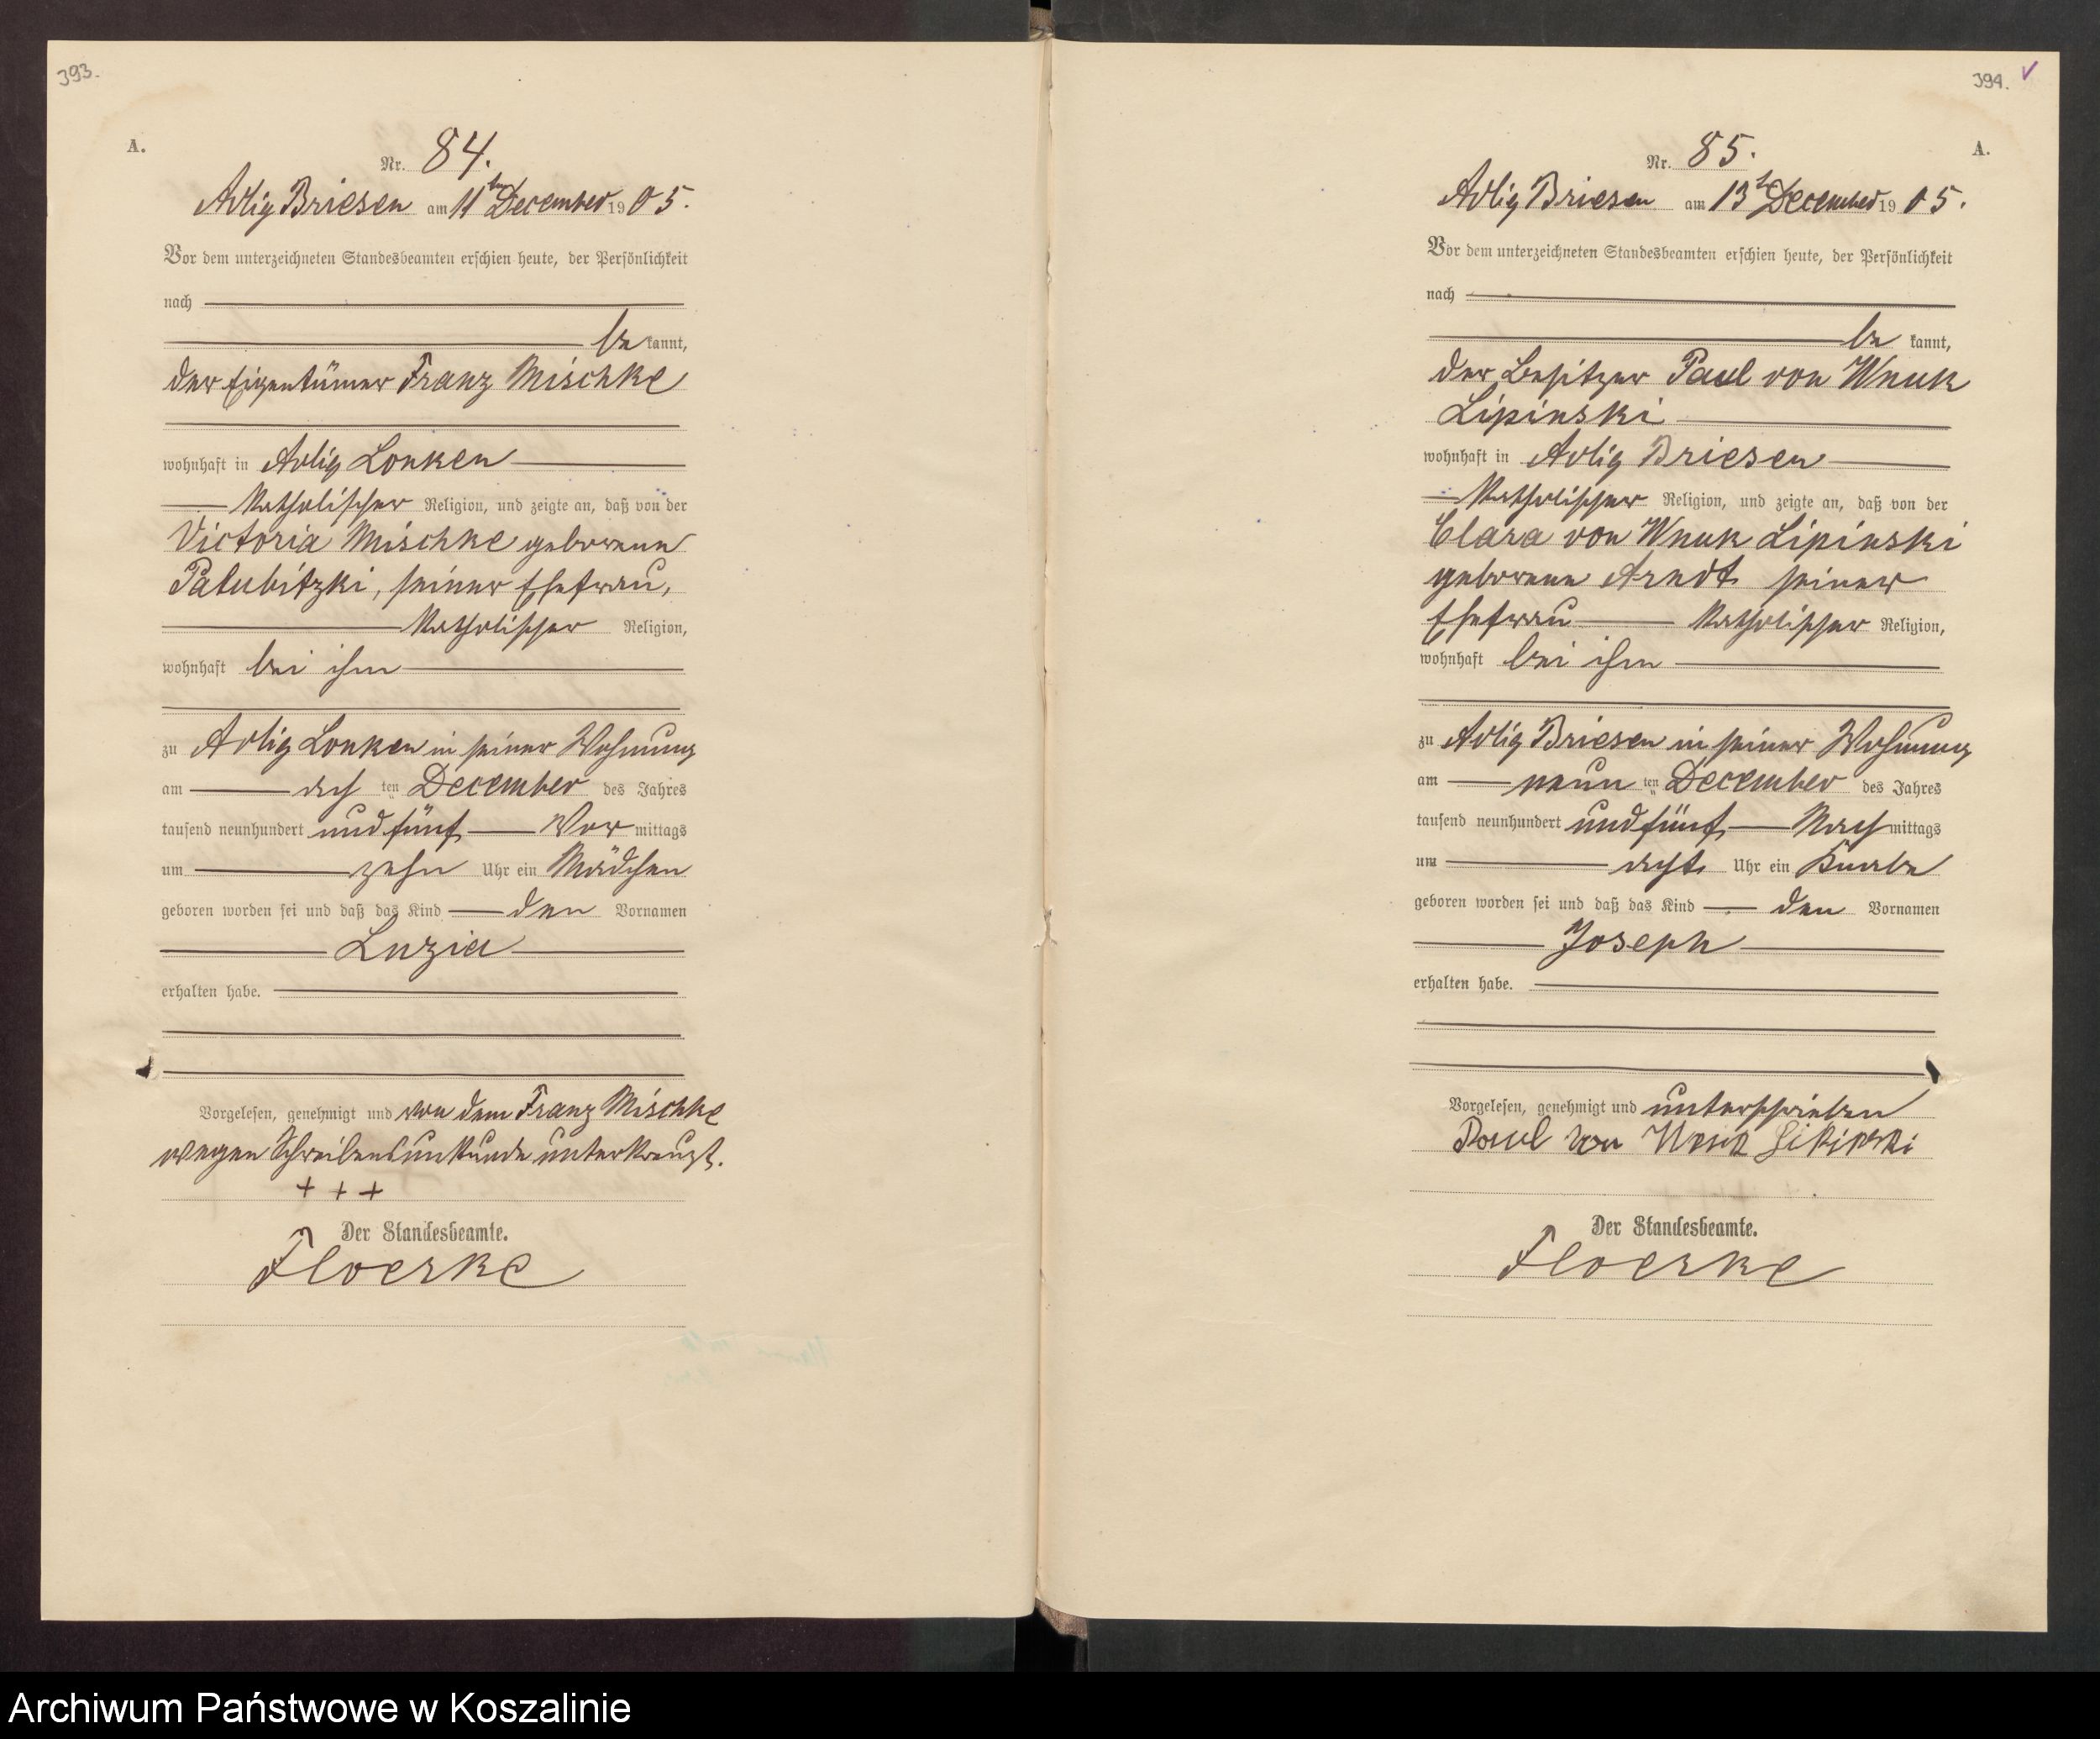 393.
A.
Nr. 84.
Adlig Briesen am 11ten December 1905.
Vor dem unterzeichneten Standesbeamten erschien heute, der Persönlichkeit
nach
be kannt,
der Eigentümer Franz Mischke
wohnhaft in Adlig Lonken
Katholischer Religion, und zeigte an, daß von der
Victoria Mischke geborene
Palubitzki, seiner Ehefrau,
Katholischer Religion,
wohnhaft bei ihm
zu Adlig Lonken in seiner Wohnung
am ach ten December des Jahres
tausend neunhundert und fünf Vor mittags
um zehn Uhr ein Mädchen
geboren worden sei und daß das Kind den Vornamen
Luzia
erhalten habe.
Vorgelesen, genehmigt und von dem Franz Mischke
wegen Schreibensunkunde unterkreuzt.
+ + +
Der Standesbeamte.
Floerke
394.
A.
Nr. 85.
Adlig Briesen am 13te December 1905.
Vor dem unterzeichneten Standesbeamten erschien heute, der Persönlichkeit
nach
be kannt,
der Besitzer Paul von Wnuk
Lipinski
wohnhaft in Adlig Briesen
Katholischer Religion, und zeigte an, daß von der
Clara von Wnuk Lipinski
geborene Arndt seiner
Ehefrau Katholischer Religion,
wohnhaft bei ihm
zu Adlig Briesen in seiner Wohnung
am neun ten December des Jahres
tausend neunhundert und fünf Nach mittags
um acht Uhr ein Knabe
geboren worden sei und daß das Kind den Vornamen
Joseph
erhalten habe.
Vorgelesen, genehmigt und unterschrieben
Paul von Wnuk Lipinski
Der Standesbeamte.
Floerke
Archiwum Państwowe w Koszalinie